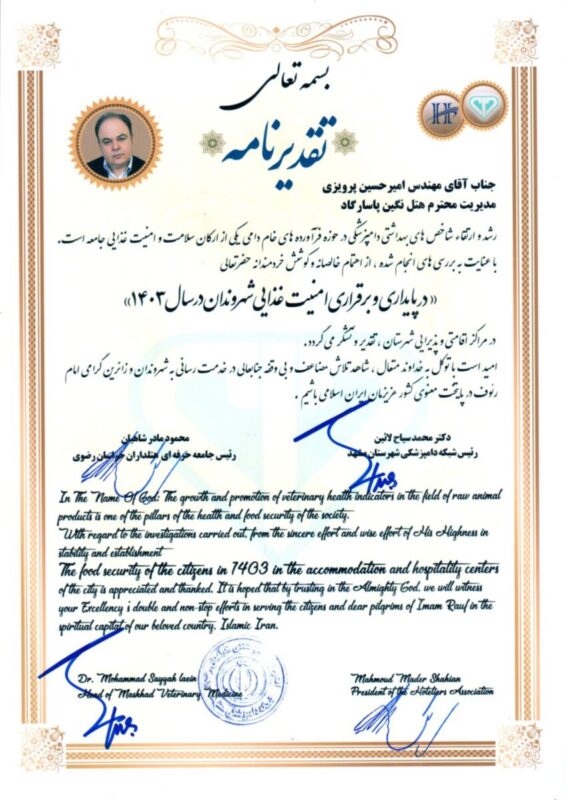 بسمه تعالی
تقدیرنامه
جناب آقای مهندس امیرحسین پرویزی
مدیریت محترم هتل نگین پاسارگاد
رشد و ارتقاء شاخص های بهداشتی دامپزشکی در حوزه فرآورده های خام دامی یکی از ارکان سلامت و امنیت غذایی جامعه است.
با عنایت به بررسی های انجام شده ، از اهتمام خالصانه و کوشش خردمندانه حضرتعالی
«در پایداری و برقراری امنیت غذایی شهروندان در سال ۱۴۰۳»
در مراکز اقامتی و پذیرایی شهرستان ، تقدیر و تشکر می گردد.
امید است با توکل به خداوند متعال ، شاهد تلاش مضاعف و بی وقفه جنابعالی در خدمت رسانی به شهروندان و زائرین گرامی امام
رئوف در پایتخت معنوی کشور عزیزمان ایران اسلامی باشیم .
دکتر محمد سیاح لائین
رئیس شبکه دامپزشکی شهرستان مشهد
محمود مادر شاهیان
رئیس جامعه حرفه ای هتلداران خراسان رضوی
In The Name Of God: The growth and promotion of veterinary health indicators in the field of raw animal
products is one of the pillars of the health and food security of the society.
With regard to the investigations carried out, from the sincere effort and wise effort of His Highness in
stability and establishment
The food security of the citizens in 1403 in the accommodation and hospitality centers
of the city is appreciated and thanked. It is hoped that by trusting in the Almighty God, we will witness
your Excellency's double and non-stop efforts in serving the citizens and dear pilgrims of Imam Rauf in the
spiritual capital of our beloved country, Islamic Iran.
Dr. Mohammad Sayyah laein
Head of Mashhad Veterinary Medicine
Mahmoud Mader Shahian
President of the Hoteliers Association